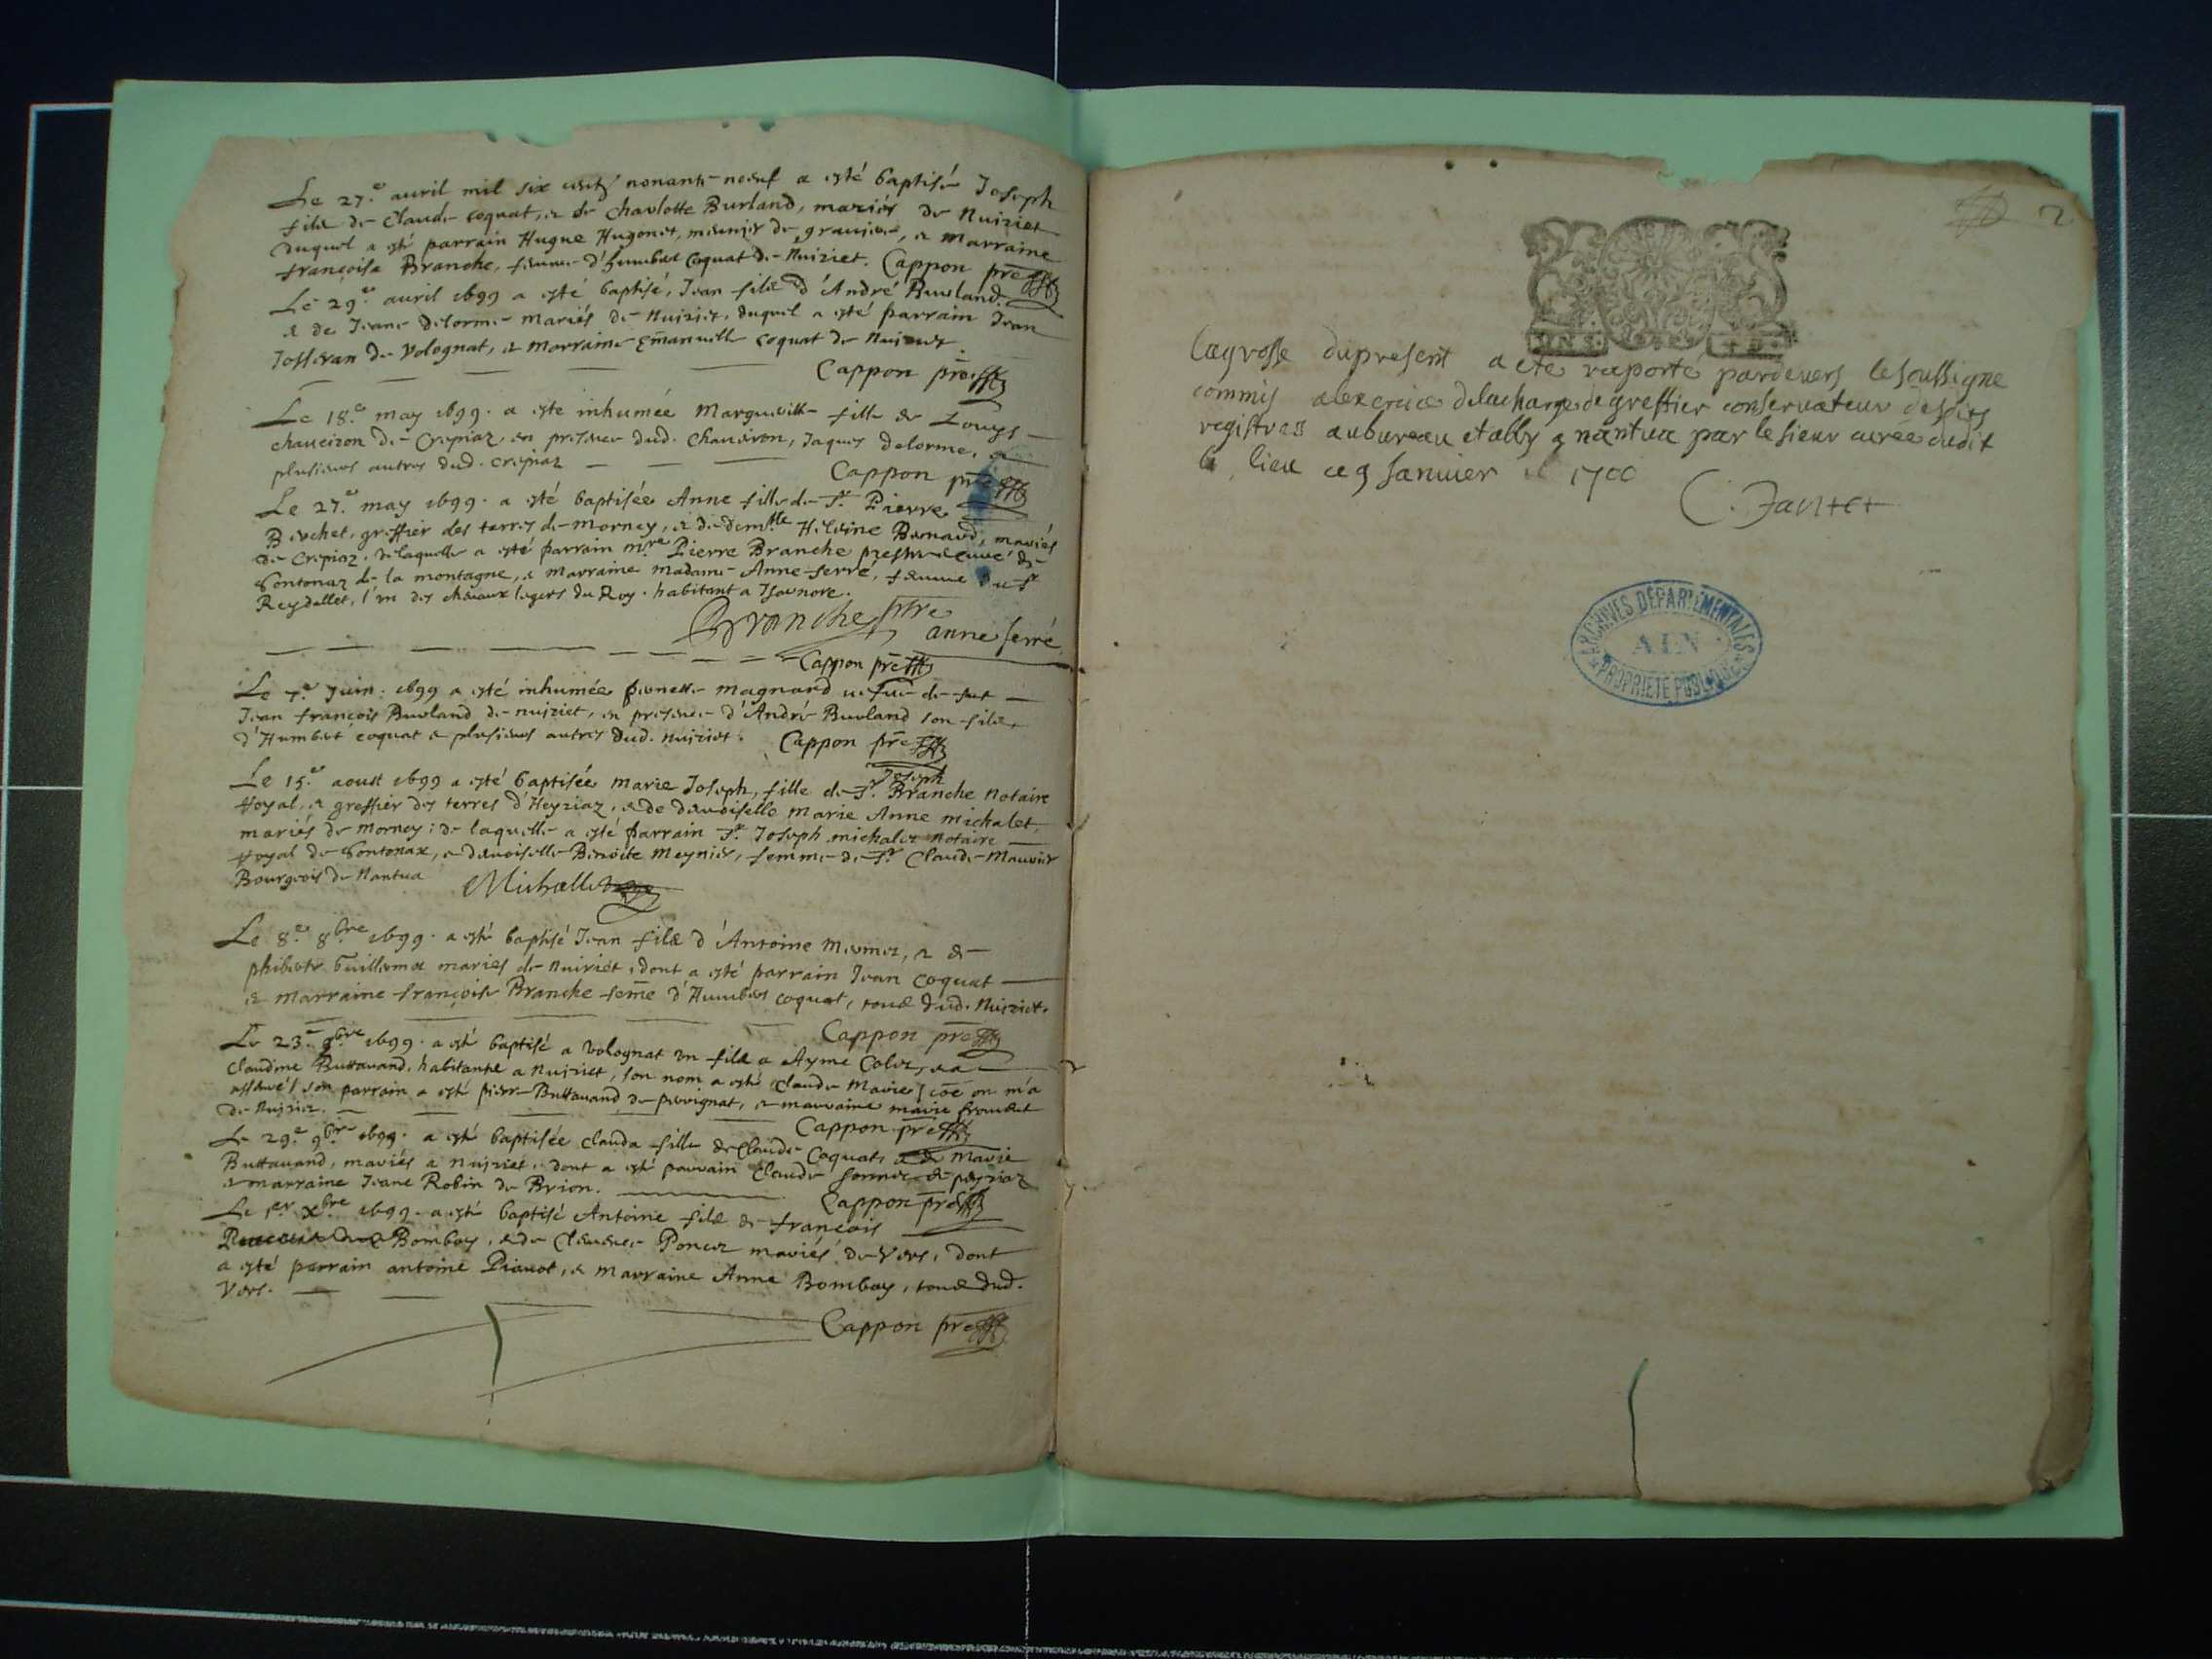 Le 27.e auril mil six centz nonante-neuf a esté baptisé Joseph
filz de Claude coquat, & de charlotte Burland, mariés de Nuiriet
duquel a esté parrain Hugue Hugonet, meunier de grauiere, & Marraine
françoise Branche, femme d'humbert Coquat de Nuiriet. Cappon pre
Le 29.e auril 1699 a esté baptisé, Jean filz d'André Burland
& de Jeane delorme mariés de Nuiriet, duquel a esté parrain Jean
Josseran de Volognat, & marraine Emanuelle coquat de Nuiriet
Cappon pre
Le 18.e may 1699. a este inhumée Margueritte fille de Louys
chaueiron de Crepiaz, en presence dud. chaueiron, Jaques delorme, &
plusieurs autres dud. crepiaz
Cappon pre
Le 27.e may 1699. a esté baptisée Anne fille de Sr. Pierre
Bruchet, greffier des terres de mornay, & de demlle Heleine Bernaud, mariés
de Crepiaz. de laquelle a esté parrain mre Pierre Branche prestre & curé de
Sontonaz de la montagne, & marraine madame Anne ferré, femme du Sr
Reydellet, l'vn des cheuaux legers du Roy. habitant a Isernore.
Branche ptre
anne ferré
Cappon pre
Le 7.e Juin. 1699 a esté inhumée pernette magnard uefue de feu
Jean françois Burland de nuiriet, en presence d'André Burland son filz,
d'Humbert coquat & plusieurs autres dud. nuiriet. Cappon pre
Joseph
Le 15.e aoust 1699 a esté baptisée Marie Joseph, fille de Sr. Branche Notaire
Royal, & greffier des terres d'Heyriaz, & de demoiselle Marie Anne michalet,
mariés de mornay: de laquelle a esté parrain Sr. Joseph michalet Notaire
Royal de Sontonax, & demoiselle Benoite Meynier, femme de Sr Claude Mauvier
Bourgeois de Nantua
Michallet
Le 8.e 8bre 1699. a esté baptisé Jean filz d'Antoine mermet, & de
phiberte Guillemot mariés de nuiriet, dont a esté parrain Jean coquat
& marraine françoise Branche feme d'Humbert coquat, touz dud. Nuiriet.
Cappon pre
Le 23.e 9bre 1699. a esté baptisé a volognat vn filz a Ayme Colet, & a
Claudine Buttauand, habitante a nuiriet, son nom a esté Claude Marie (coe on m'a
asseuré) son parrain a esté pierre Buttauand de peurignat, & marraine marie
de Nuiriet.
Cappon pre
Le 29.e 9bre 1699. a esté baptisée Clauda fille de Claude Coquat, & de Marie
Buttauand, mariés a nuiriet, dont a esté parrain Claude de peyriaz
& marraine Jeane Robin de Brion.
Cappon pre
Le 1.er xbre 1699. a esté baptisé Antoine filz de françois
Bomboy, & de Clemence Poncet mariés de Vers, dont
a esté parrain antoine Piauot, & marraine Anne Bomboy, touz dud.
Vers.
Cappon pre
2
la grosse du present a été raporté pardeuers le soussigne
commis a lexercice de la charge de greffier conservateur desdits
registres au bureau etably a nantua par le sieur curée dudit
lieu ce 9 Januier 1700
C. Jantet
ARCHIVES DÉPARTEMENTALES
AIN
PROPRIÉTÉ PUBLIQUE